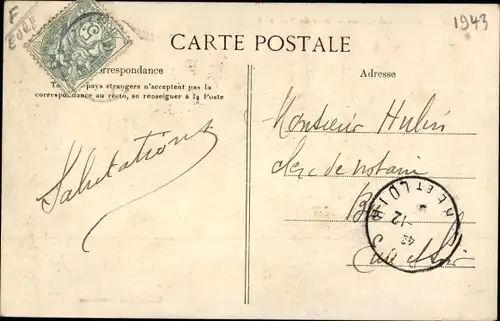 1943
CARTE POSTALE
Correspondance
pays étrangers n'acceptent pas la
correspondance au recto, se renseigner à la Poste
Adresse
Salutations
Monsieur Hulin
clerc de notaire
ET LOIR